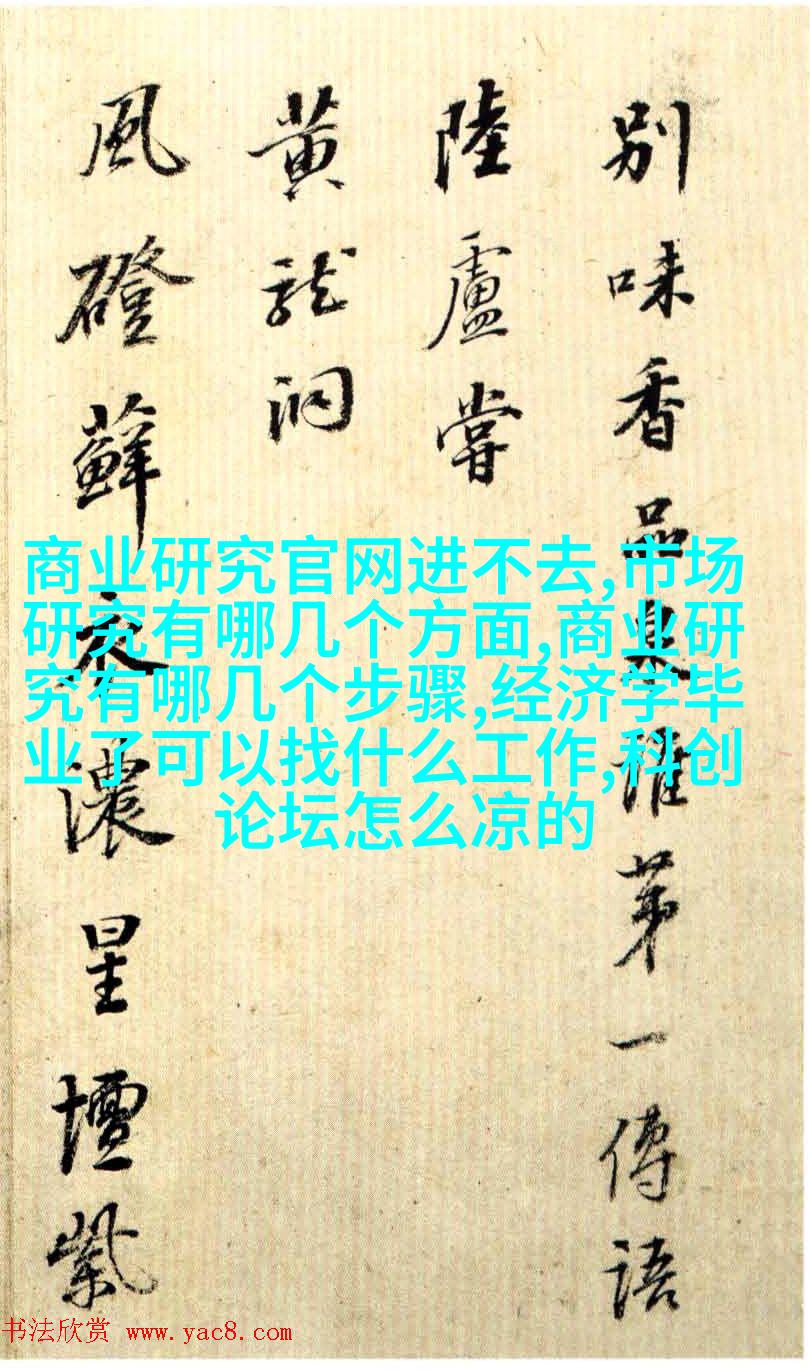 別味香品泉誰第一傳語
陸盧嘗
黄龍洞
風磴蘚衣濃星壇紫
商业研究官网进不去,市场
研究有哪几个方面,商业研
究有哪几个步骤,经济学毕
业了可以找什么工作,科创
论坛怎么凉的
书法欣赏 www.yac8.com